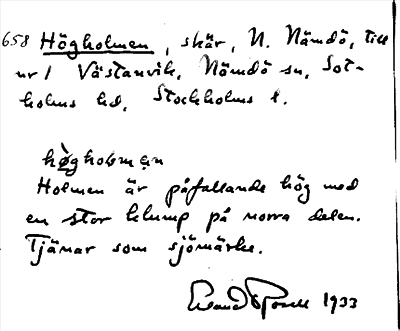 658 Högholmen, skär, N. Nämdö, till
nr 1 Västanvik, Nämdö sn, Sot-
holms hd, Stockholms l.
hògholmẹn
Holmen är påfallande hög med
en stor klump på norra delen.
Tjänar som sjömärke.
1933